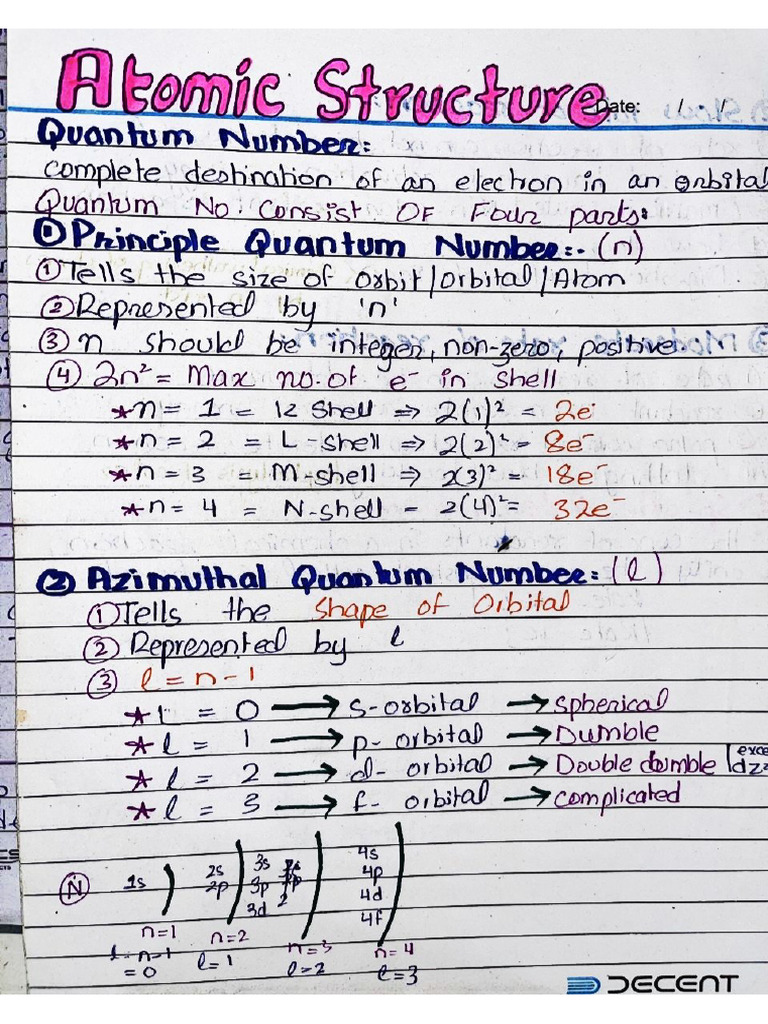 Atomic Structure
Date: / /
Quantum Number:
complete destination of an electron in an orbital
Quantum No. Consist OF Four parts:
① Principle Quantum Number:- (n)
① Tells the size of Orbit/Orbital/Atom
② Represented by 'n'
③ n should be integer, non-zero, positive.
④ 2n² = Max no. of e⁻ in shell
*n = 1 = K Shell ⇒ 2(1)² = 2e⁻
*n = 2 = L-shell ⇒ 2(2)² = 8e⁻
*n = 3 = M-shell ⇒ 2(3)² = 18e⁻
*n = 4 = N-shell - 2(4)² = 32e⁻
② Azimuthal Quantum Number: (l)
① Tells the Shape of Orbital
② Represented by l
③ l = n - 1
* l = 0 → s-orbital → Spherical
* l = 1 → p-orbital → Dumble
* l = 2 → d-orbital → Double dumble
dz²
* l = 3 → f-orbital → complicated
N 1s ) 2s ) 3s ) 4s )
2p 3p 4p
3d 4d
4f
n=1 n=2 n=3 n=4
l = n-1 l=1 l=2 l=3
= 0
DECENT